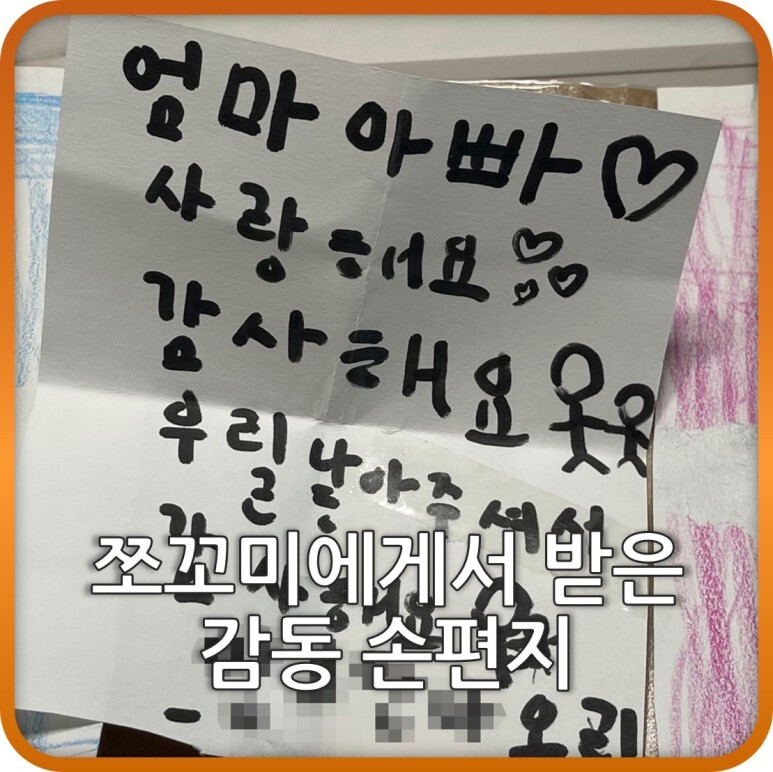 엄마아빠♡
사랑해요
감사해요
우리낳아주셔서
감사해요
쪼꼬미에게서 받은
감동 손편지
- 오리